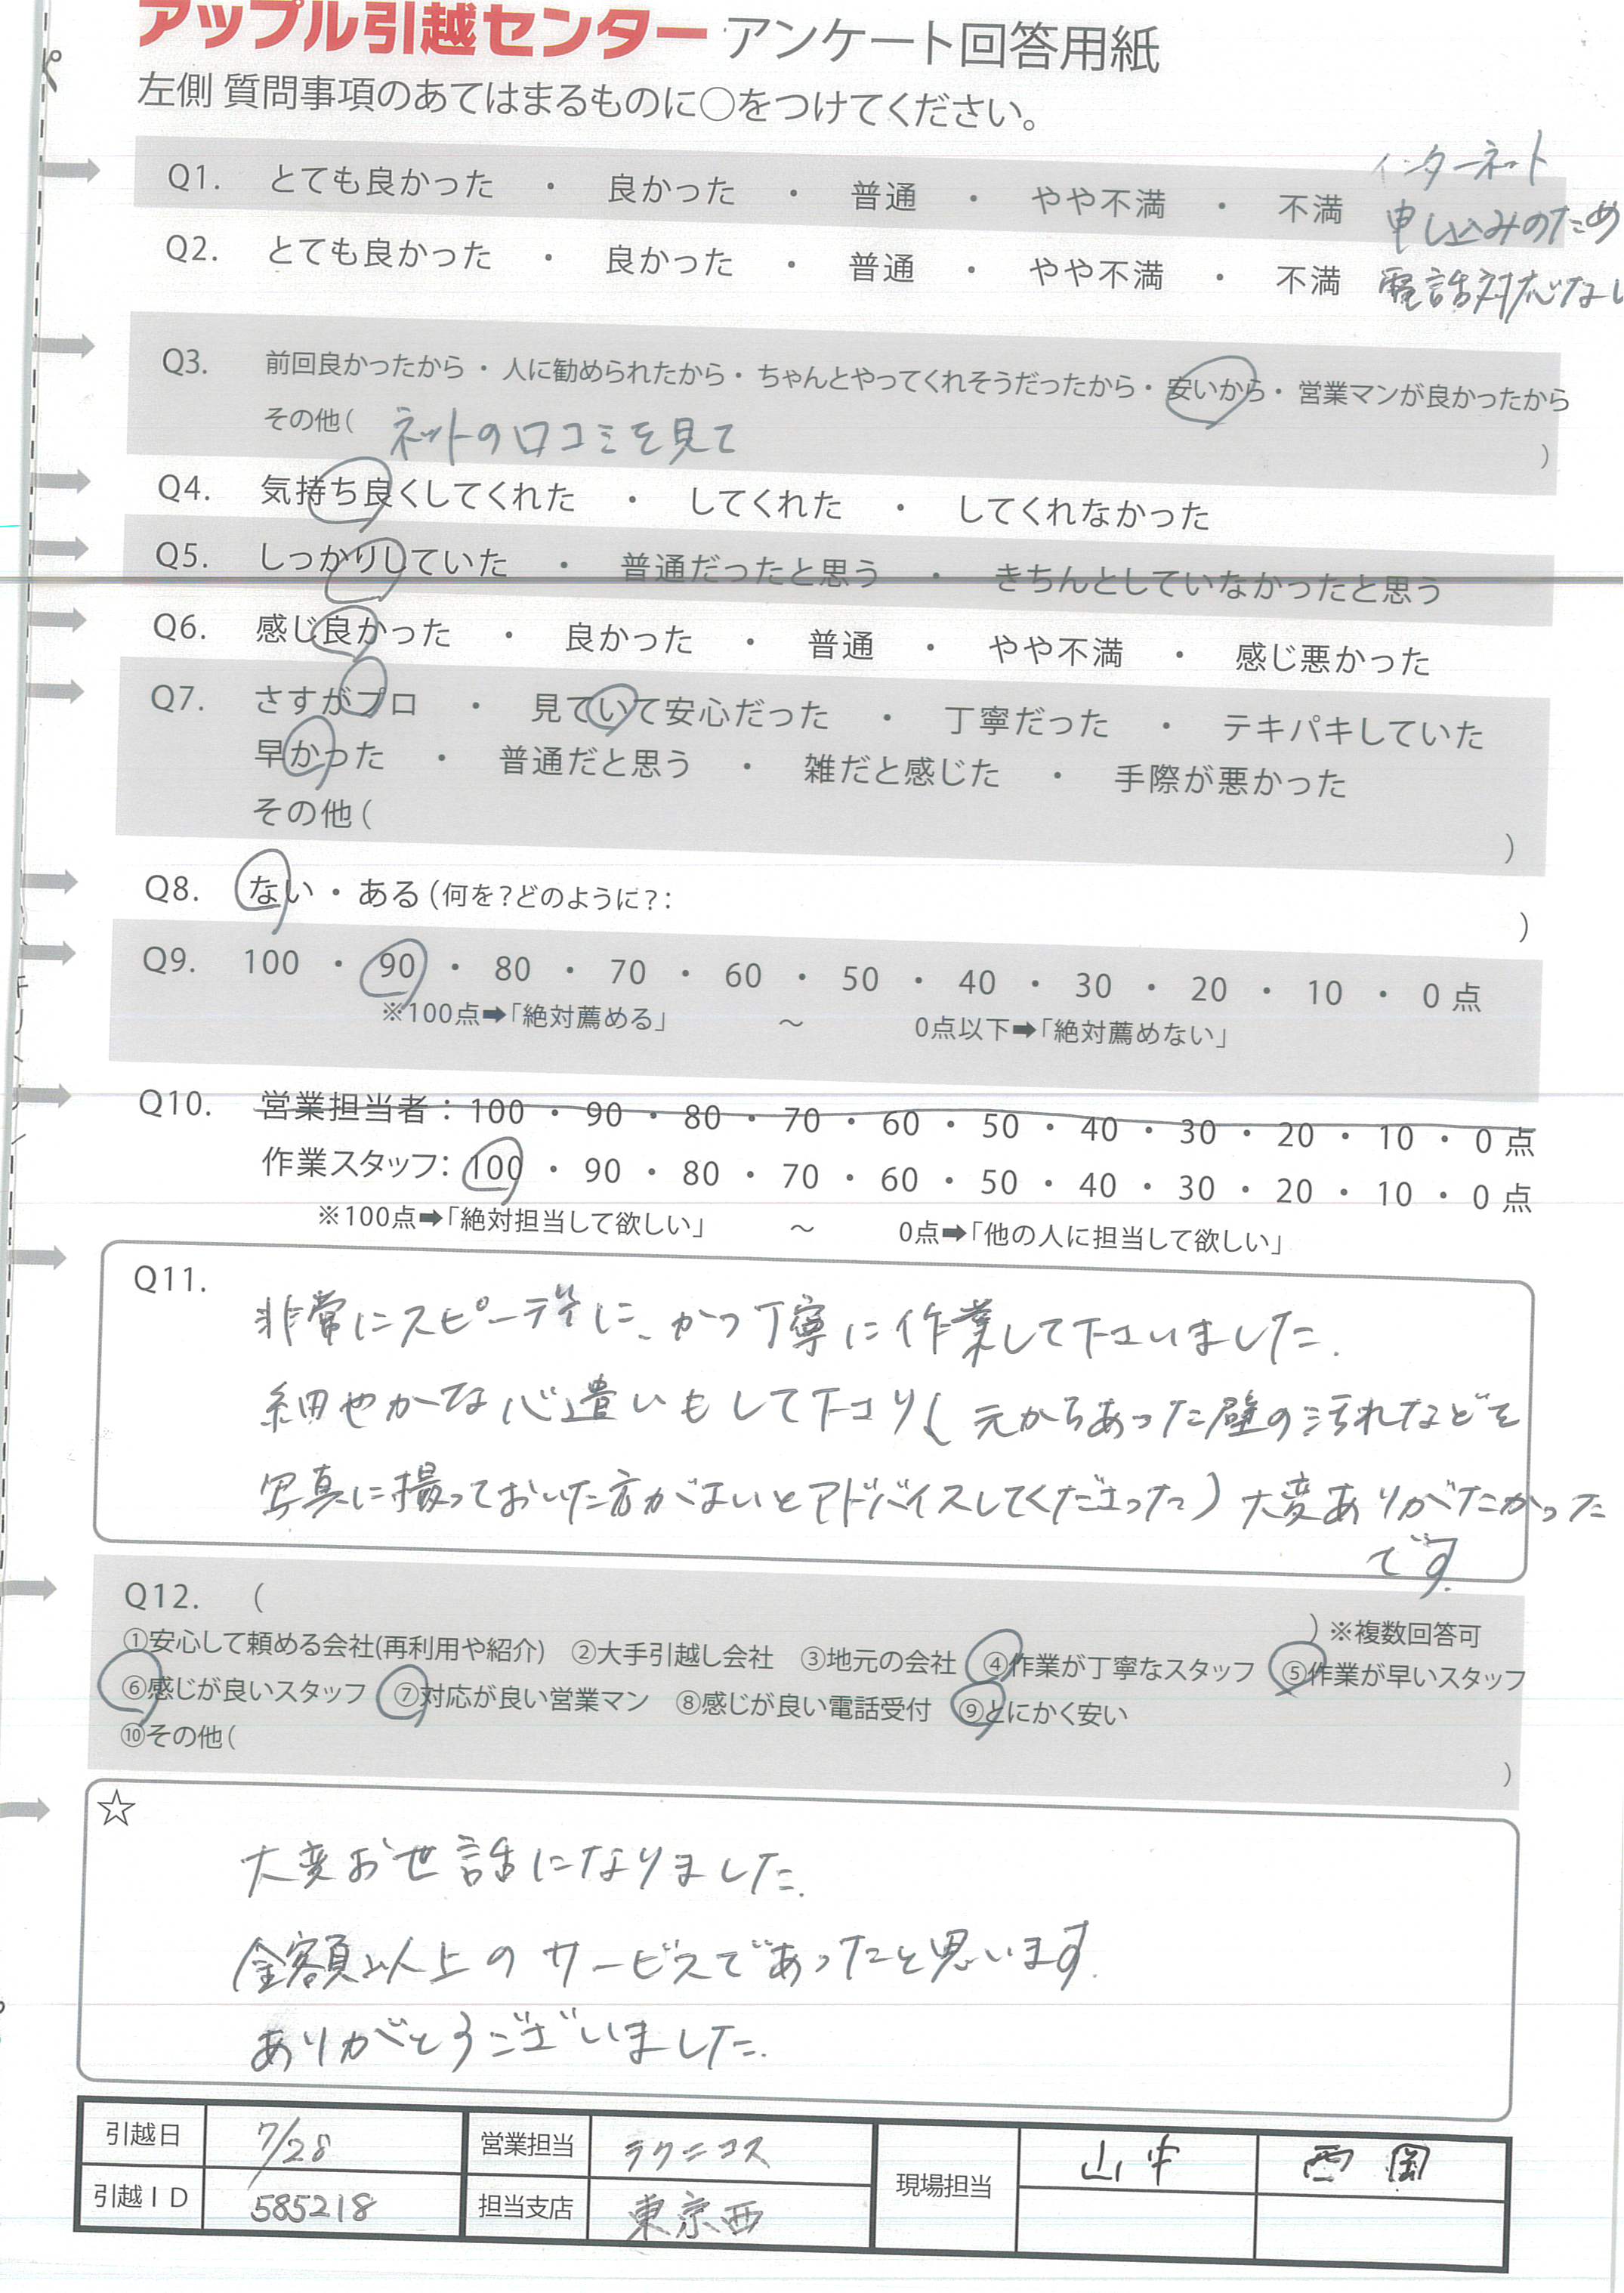 アップル引越センター アンケート回答用紙
左側 質問事項のあてはまるものに○をつけてください。
インターネット
申し込みのため
電話対応なし
Q1. とても良かった ・ 良かった ・ 普通 ・ やや不満 ・ 不満
Q2. とても良かった ・ 良かった ・ 普通 ・ やや不満 ・ 不満
Q3. 前回良かったから ・ 人に勧められたから ・ ちゃんとやってくれそうだったから ・ 安いから ・ 営業マンが良かったから
その他( ネットの口コミを見て )
Q4. 気持ち良くしてくれた ・ してくれた ・ してくれなかった
Q5. しっかりしていた ・ 普通だったと思う ・ きちんとしていなかったと思う
Q6. 感じ良かった ・ 良かった ・ 普通 ・ やや不満 ・ 感じ悪かった
Q7. さすがプロ ・ 見ていて安心だった ・ 丁寧だった ・ テキパキしていた
早かった ・ 普通だと思う ・ 雑だと感じた ・ 手際が悪かった
その他( )
Q8. ない ・ ある (何を?どのように?: )
Q9. 100 ・ 90 ・ 80 ・ 70 ・ 60 ・ 50 ・ 40 ・ 30 ・ 20 ・ 10 ・ 0 点
※100点➡「絶対薦める」 ～ 0点以下➡「絶対薦めない」
Q10. 営業担当者: 100 ・ 90 ・ 80 ・ 70 ・ 60 ・ 50 ・ 40 ・ 30 ・ 20 ・ 10 ・ 0 点
作業スタッフ: 100 ・ 90 ・ 80 ・ 70 ・ 60 ・ 50 ・ 40 ・ 30 ・ 20 ・ 10 ・ 0 点
※100点➡「絶対担当して欲しい」 ～ 0点➡「他の人に担当して欲しい」
Q11.
非常にスピーディに、かつ丁寧に作業して下さいました.
細やかな心遣いもして下さり(元からあった壁の汚れなどを
写真に撮っておいた方がよいとアドバイスしてくださった)大変ありがたかった
です.
Q12. ( ) ※複数回答可
①安心して頼める会社(再利用や紹介) ②大手引越し会社 ③地元の会社 ④作業が丁寧なスタッフ ⑤作業が早いスタッフ
⑥感じが良いスタッフ ⑦対応が良い営業マン ⑧感じが良い電話受付 ⑨とにかく安い
⑩その他( )
☆
大変お世話になりました.
金額以上のサービスであったと思います.
ありがとうございました.
引越日 7/28 営業担当 ラクニコス 現場担当 山中 西岡
引越ID 585218 担当支店 東京西